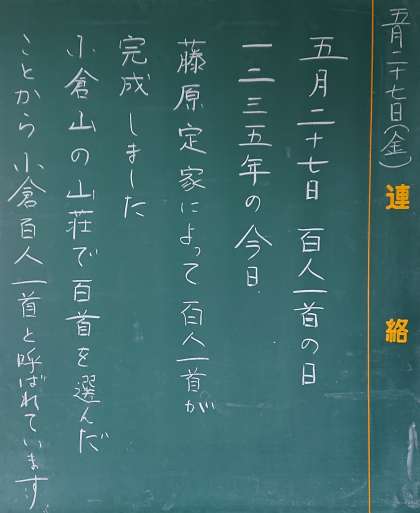 五月二十七日(金)
連絡
五月二十七日 百人一首の日
一二三五年の今日
藤原定家によって百人一首が
完成しました
小倉山の山荘で百首を選んだ
ことから小倉百人一首と呼ばれています。